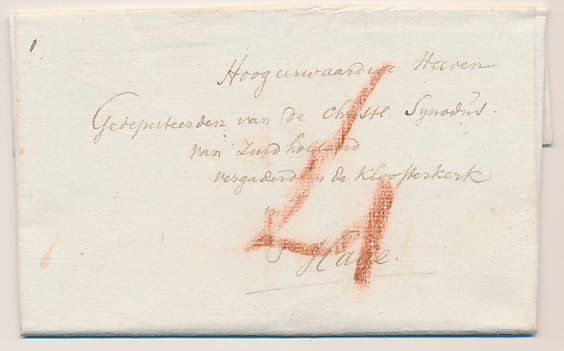 Hoogeerwaardige Heeren
Gedeputeerden van de Christl Synodus
van Zuid holland
vergaderd in de Kloosterkerk
in
s Hage.
4